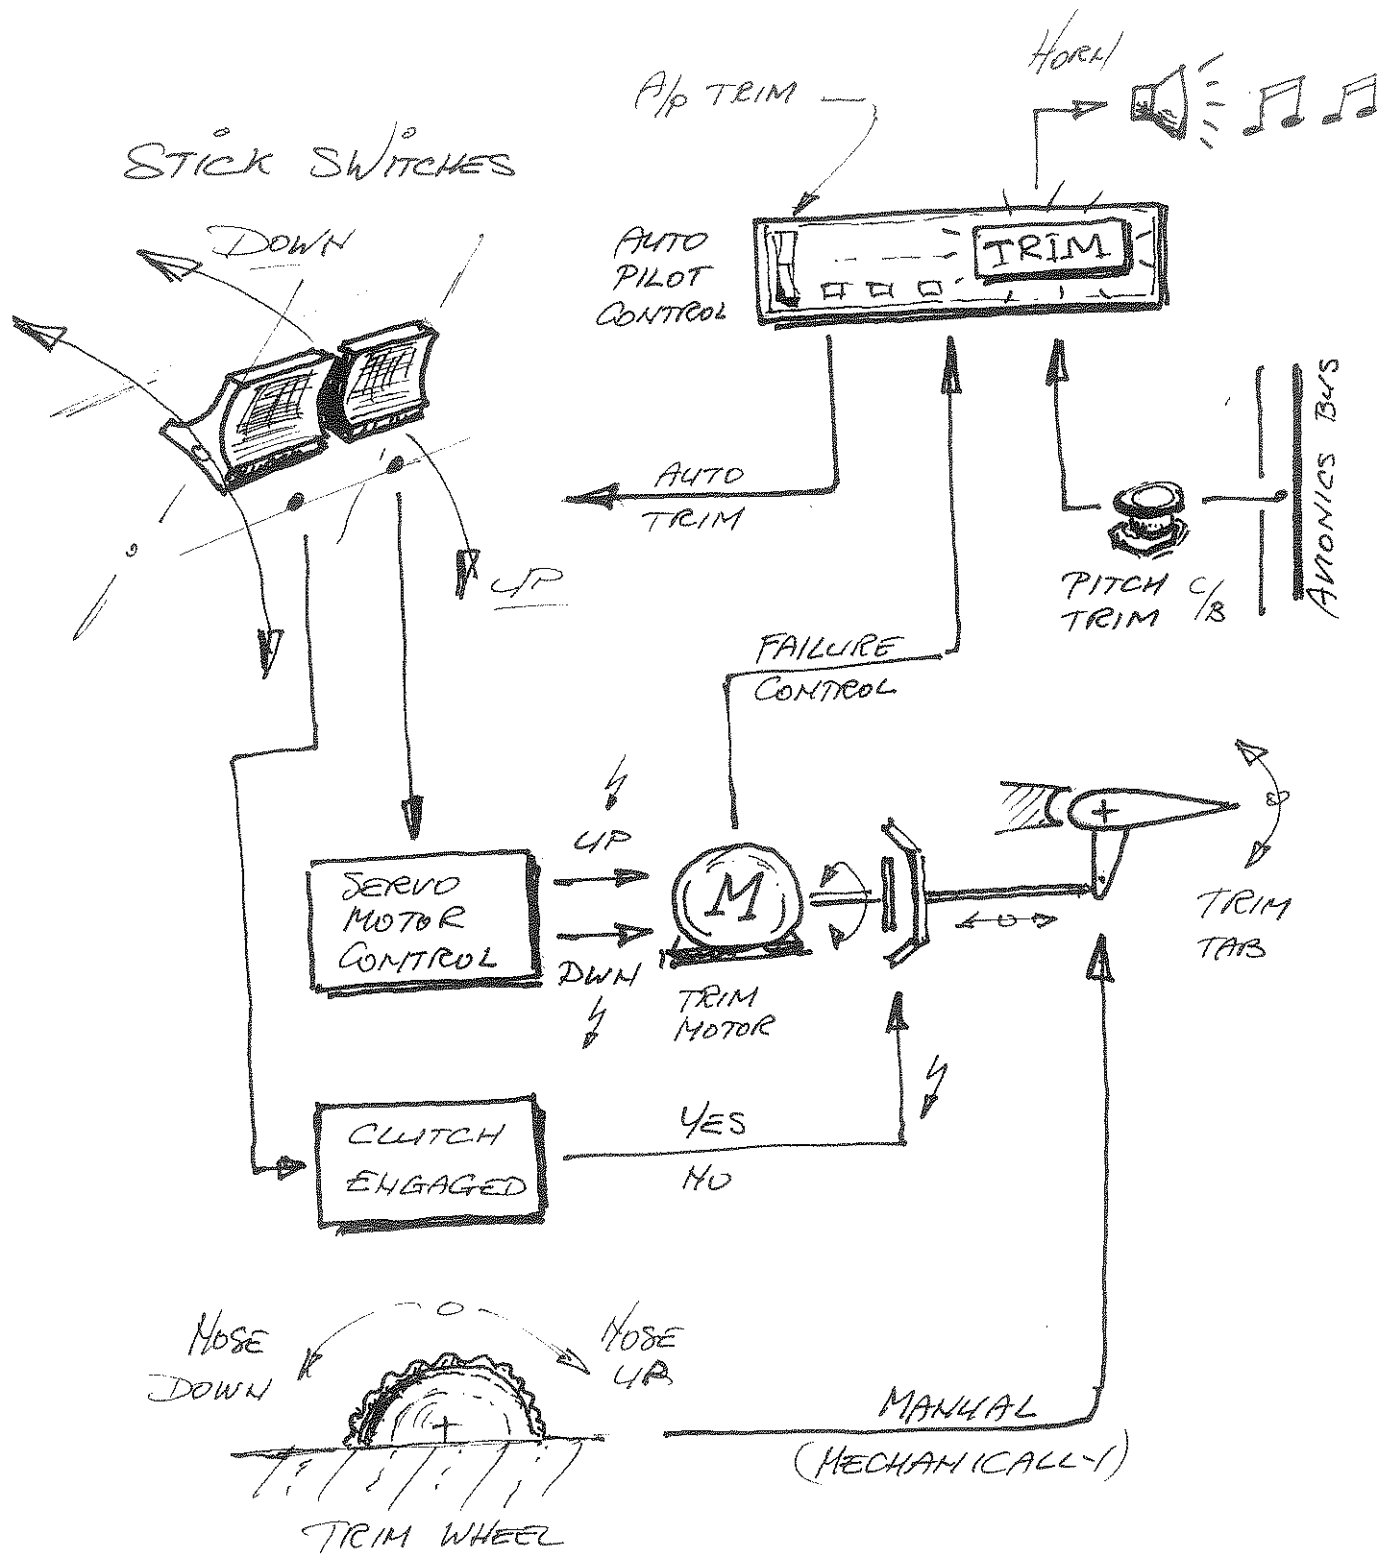 HORN
A/P TRIM
STICK SWITCHES
DOWN
AUTO
PILOT
CONTROL
TRIM
AUTO
TRIM
UP
AVIONICS BUS
PITCH C/B
TRIM
FAILURE
CONTROL
UP
SERVO
MOTOR
CONTROL
M
DWN
TRIM
MOTOR
TRIM
TAB
CLUTCH
ENGAGED
YES
NO
NOSE
DOWN
NOSE
UP
MANUAL
(MECHANICALLY)
TRIM WHEEL